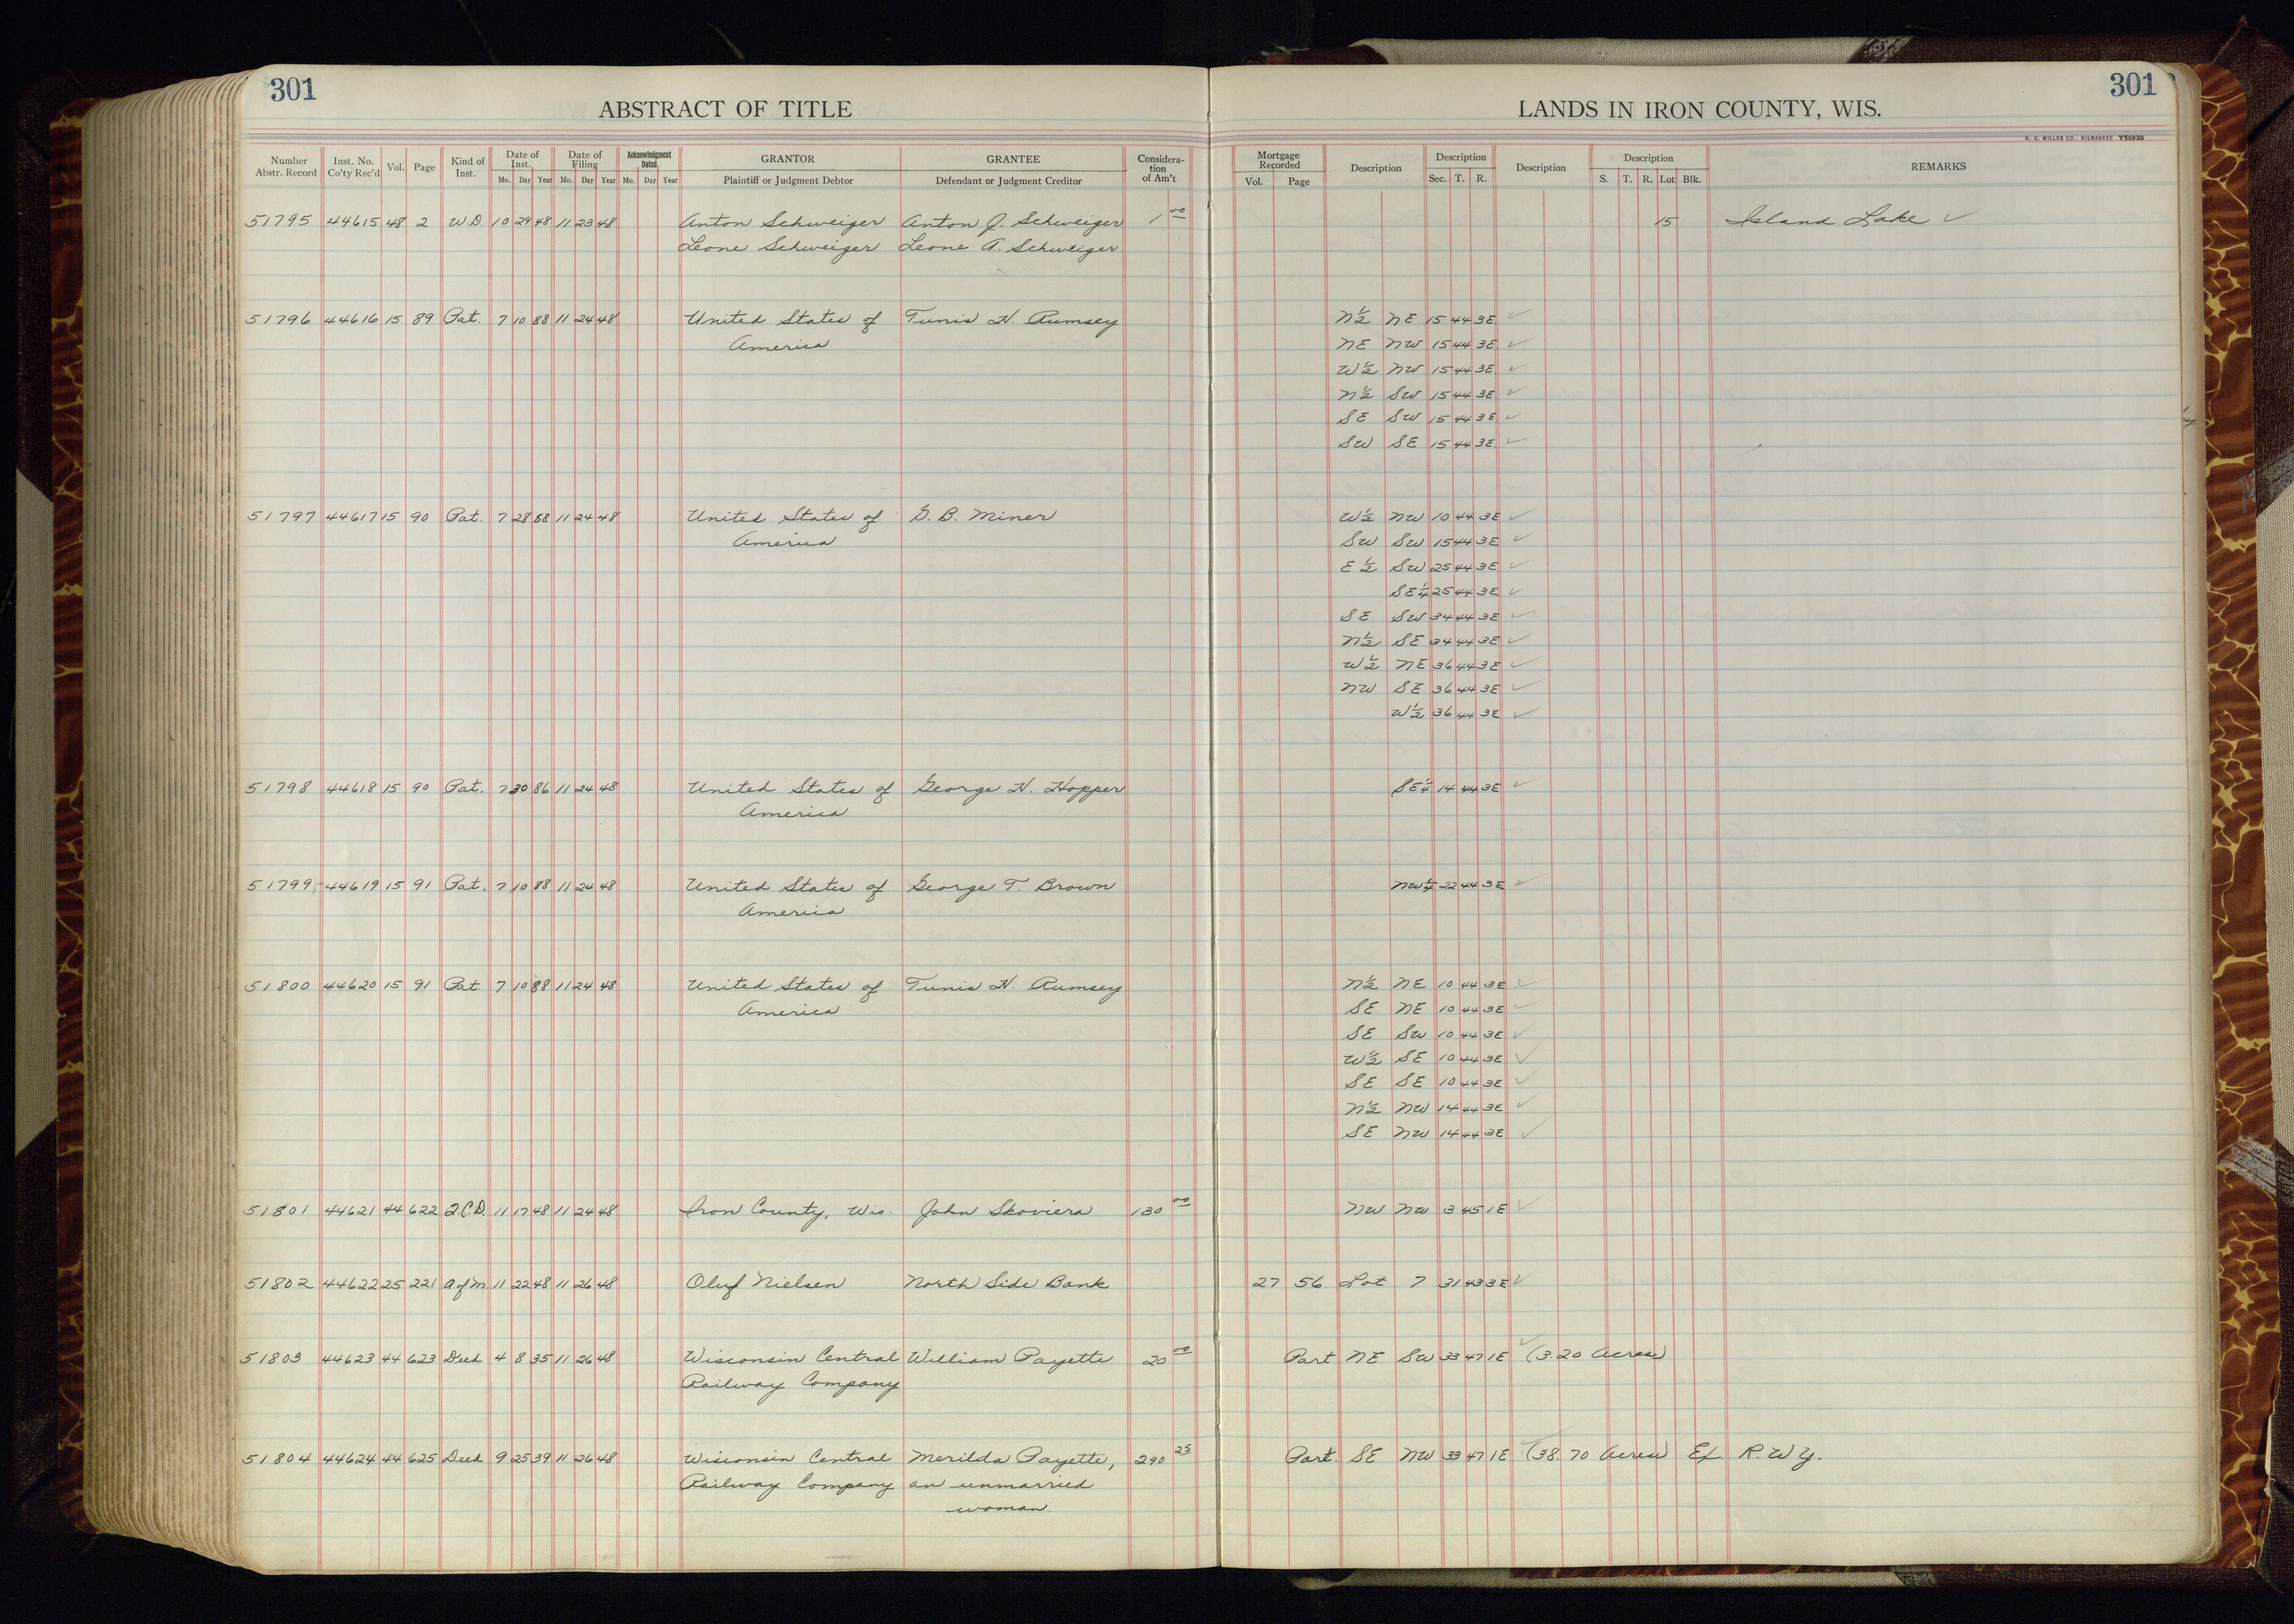 301
ABSTRACT OF TITLE
LANDS IN IRON COUNTY, WIS.
301
H. C. MILLER CO., MILWAUKEE Y50930
Number Abstr. Record Inst. No. Co'ty Rec'd Vol. Page Kind of Inst. Date of Inst. Mo. Day Year Date of Filing Mo. Day Year Acknowledgment Dated Mo. Day Year GRANTOR Plaintiff or Judgment Debtor GRANTEE Defendant or Judgment Creditor Considera-tion of Am't Mortgage Recorded Vol. Page Description Description Sec. T. R. Description Description S. T. R. Lot Blk. REMARKS
51795 44615 48 2 W.D. 10 29 48 11 23 48 Anton Schweiger Anton J. Schweiger 1 00 15 Island Lake ✓
Leone Schweiger Leone A. Schweiger
51796 44616 15 89 Pat. 7 10 88 11 24 48 United States of Tunis H. Rumsey N½ NE 15 44 3E ✓
America NE NW 15 44 3E ✓
W½ NW 15 44 3E ✓
N½ SW 15 44 3E ✓
SE SW 15 44 3E ✓
SW SE 15 44 3E ✓
51797 44617 15 90 Pat. 7 28 88 11 24 48 United States of G. B. Miner W½ NW 10 44 3E ✓
America SW SW 15 44 3E ✓
E½ SW 25 44 3E ✓
SE¼ 25 44 3E ✓
SE SW 34 44 3E ✓
N½ SE 34 44 3E ✓
W½ NE 36 44 3E ✓
NW SE 36 44 3E ✓
W½ 36 44 3E ✓
51798 44618 15 90 Pat. 7 30 86 11 24 48 United States of George H. Hopper SE¼ 14 44 3E ✓
America
51799 44619 15 91 Pat. 7 10 88 11 24 48 United States of George T. Brown NW¼ 22 44 3E ✓
America
51800 44620 15 91 Pat. 7 10 88 11 24 48 United States of Tunis H. Rumsey N½ NE 10 44 3E ✓
America SE NE 10 44 3E ✓
SE SW 10 44 3E ✓
W½ SE 10 44 3E ✓
SE SE 10 44 3E ✓
N½ NW 14 44 3E ✓
SE NW 14 44 3E ✓
51801 44621 44 622 Q.C.D. 11 17 48 11 24 48 Iron County, Wis. John Skoviera 130 00 NW NW 3 45 1E ✓
51802 44622 25 221 A of M. 11 22 48 11 26 48 Oluf Nielsen North Side Bank 27 56 Lot 7 31 43 3E ✓
51803 44623 44 623 Deed 4 8 35 11 26 48 Wisconsin Central William Payette 20 00 Part NE SW 33 47 1E ✓ (3.20 Acres)
Railway Company
51804 44624 44 625 Deed 9 25 39 11 26 48 Wisconsin Central Merilda Payette, 290 25 Part. SE NW 33 47 1E ✓ (38.70 Acres) Ex. R.W.Y.
Railway Company an unmarried
woman.